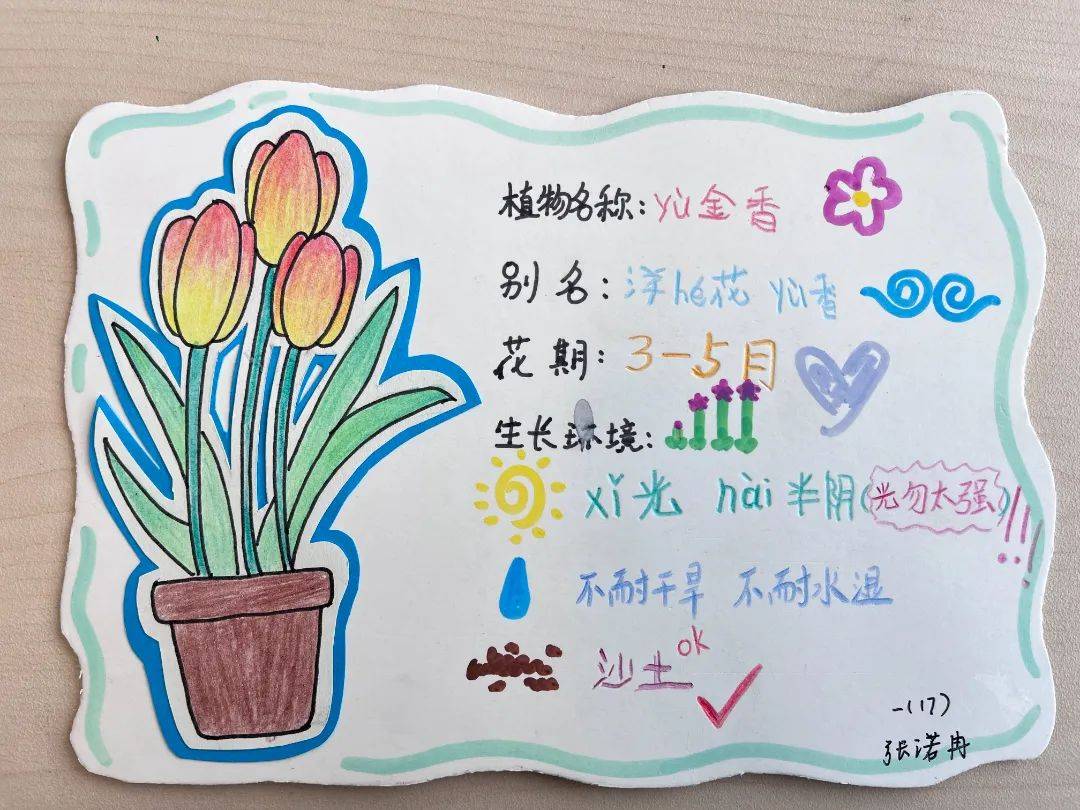 植物名称：yù金香
别名：洋hé花 yù香
花期：3-5月
生长环境：
xǐ光 nài半阴(光勿太强)!!!
不耐干旱 不耐水湿
沙土ok
一(17)
张诺冉